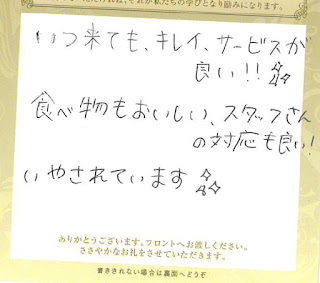 それが私たちの学びとなり励みになります。
いつ来ても、キレイ、サービスが
良い!!
食べ物もおいしい、スタッフさん
の対応も良い!
いやされています
ありがとうございます。フロントへお渡しください。
ささやかなお礼をさせていただきます。
書ききれない場合は裏面へどうぞ